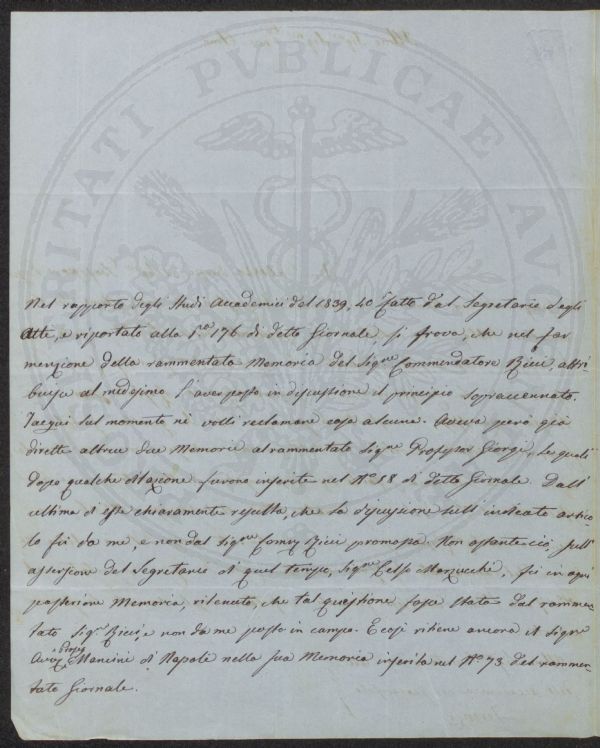 PUBLICAE
Nel rapporto degli Studi Accademici del 1839, 40 fatto dal Segretario degli
Atti, e riportato alla p. 176 di detto Giornale, si trova, che nel far
menzione della rammentata Memoria del Sigre Commendatore Ricci, attri-
buisce al medesimo l'aver posto in discussione il principio sopraccennato.
Tacqui sul momento nè volli reclamare cosa alcuna. Aveva però già
dirette altre due Memorie al rammentato Sigre Professor Giorgi, le quali
dopo qualche dilazione furono inserite nel No 58 di detto Giornale. Dall'
ultima di esse chiaramente resulta, che la discussione sull'indicato artico-
lo fu da me, e non dal Sigre Ricci promossa. Non ostante ciò, sull'
asserzione del Segretario di quel tempo, Sigre Celso Marzucchi, fu in ogni
posteriore Memoria ritenuto, che tal questione fosse stata dal rammen-
tato Sigre Ricci, e non da me posta in campo. E così ritiene ancora il Sigre
Mancini di Napoli nella sua Memoria inserita nel No 73 del rammen-
tato Giornale.